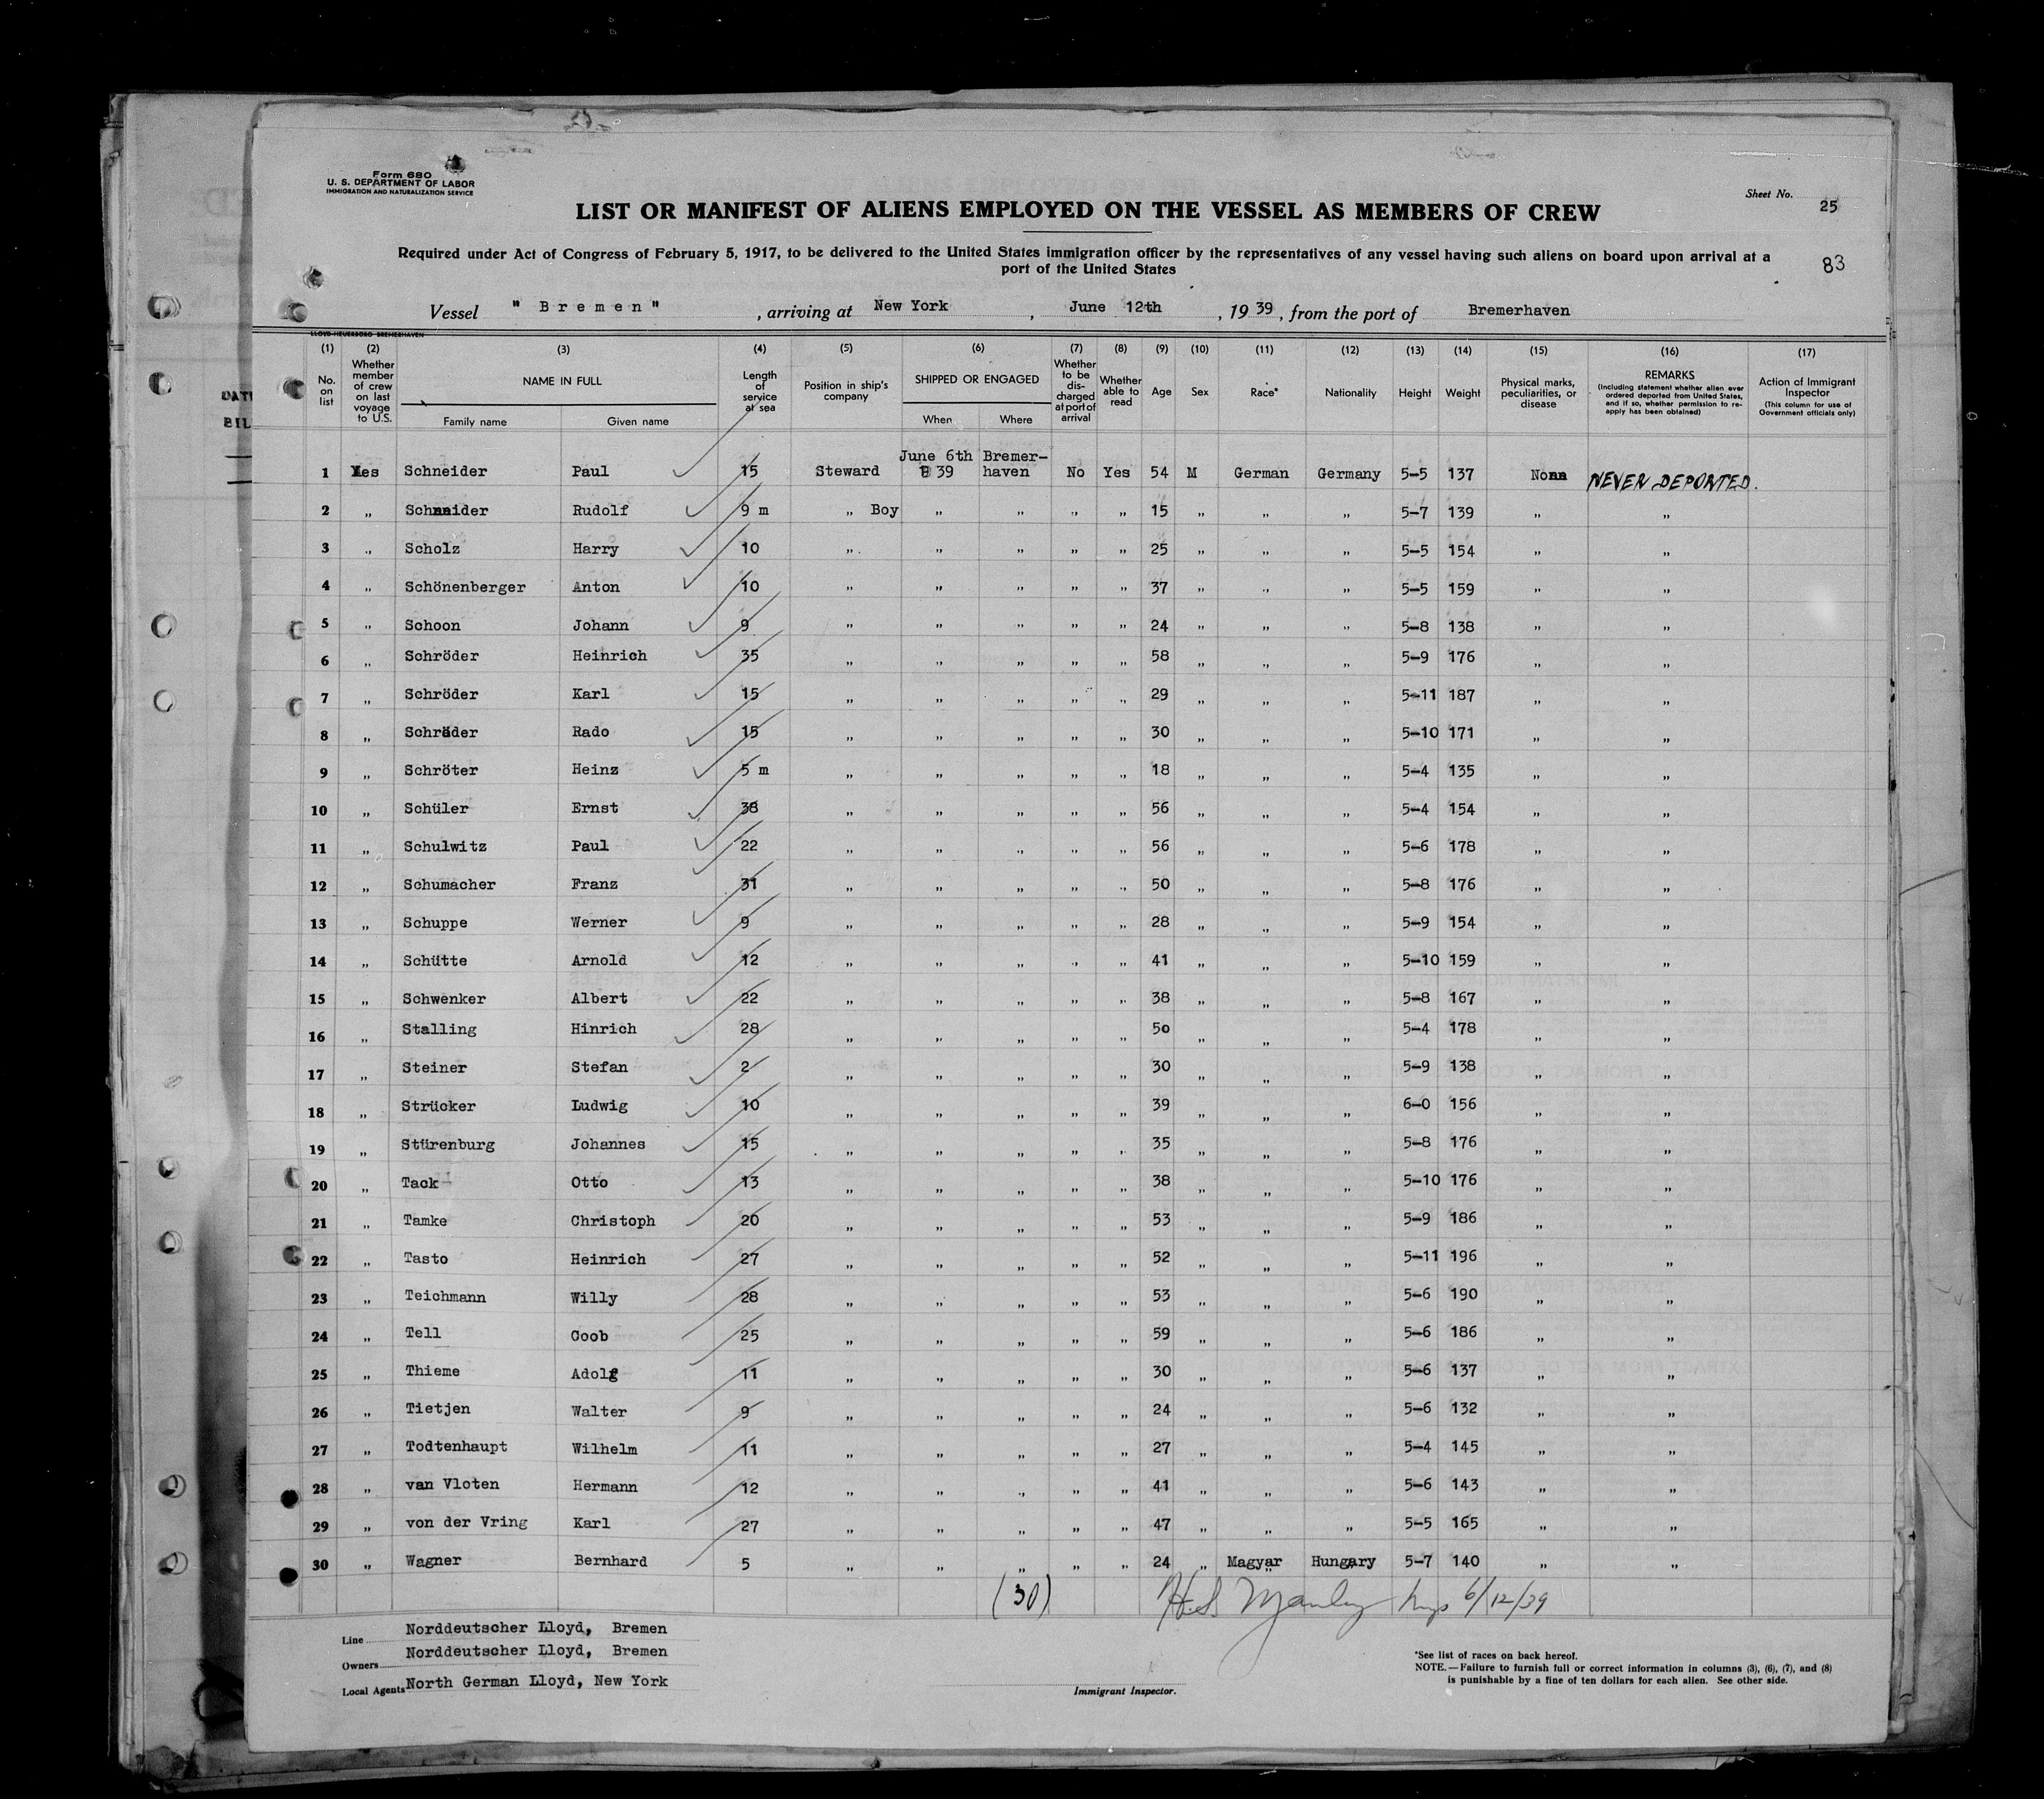 Form 680
U. S. DEPARTMENT OF LABOR
IMMIGRATION AND NATURALIZATION SERVICE
Sheet No. 25
LIST OR MANIFEST OF ALIENS EMPLOYED ON THE VESSEL AS MEMBERS OF CREW
Required under Act of Congress of February 5, 1917, to be delivered to the United States immigration officer by the representatives of any vessel having such aliens on board upon arrival at a
port of the United States
83
Vessel "Bremen", arriving at New York, June 12th, 1939, from the port of Bremerhaven
(1) (2) (3) (4) (5) (6) (7) (8) (9) (10) (11) (12) (13) (14) (15) (16) (17)
No. on list | Whether member of crew on last voyage to U.S. | NAME IN FULL Family name Given name | Length of service at sea | Position in ship's company | SHIPPED OR ENGAGED When Where | Whether to be discharged at port of arrival | Whether able to read | Age | Sex | Race* | Nationality | Height | Weight | Physical marks, peculiarities, or disease | REMARKS (Including statement whether alien ever ordered deported from United States, and if so, whether permission to reapply has been obtained) | Action of Immigrant Inspector (This column for use of Government officials only)
1 Yes Schneider Paul 15 Steward June 6th 39 Bremerhaven No Yes 54 M German Germany 5-5 137 NEVER DEPORTED.
2 „ Schneider Rudolf 9 m „ Boy „ „ „ „ 15 „ „ „ 5-7 139 „ „
3 „ Scholz Harry 10 „ „ „ „ „ 25 „ „ „ 5-5 154 „ „
4 „ Schönenberger Anton 10 „ „ „ „ „ 37 „ „ „ 5-5 159 „ „
5 „ Schoon Johann 9 „ „ „ „ „ 24 „ „ „ 5-8 138 „ „
6 „ Schröder Heinrich 35 „ „ „ „ „ 58 „ „ „ 5-9 176 „ „
7 „ Schröder Karl 15 „ „ „ „ „ 29 „ „ „ 5-11 187 „ „
8 „ Schräder Rado 15 „ „ „ „ „ 30 „ „ „ 5-10 171 „ „
9 „ Schröter Heinz 5 m „ „ „ „ „ 18 „ „ „ 5-4 135 „ „
10 „ Schüler Ernst 38 „ „ „ „ „ 56 „ „ „ 5-4 154 „ „
11 „ Schulwitz Paul 22 „ „ „ „ „ 56 „ „ „ 5-6 178 „ „
12 „ Schumacher Franz 31 „ „ „ „ „ 50 „ „ „ 5-8 176 „ „
13 „ Schuppe Werner 9 „ „ „ „ „ 28 „ „ „ 5-9 154 „ „
14 „ Schütte Arnold 12 „ „ „ „ „ 41 „ „ „ 5-10 159 „ „
15 „ Schwenker Albert 22 „ „ „ „ „ 38 „ „ „ 5-8 167 „ „
16 „ Stalling Hinrich 28 „ „ „ „ „ 50 „ „ „ 5-4 178 „ „
17 „ Steiner Stefan 2 „ „ „ „ „ 30 „ „ „ 5-9 138 „ „
18 „ Strücker Ludwig 10 „ „ „ „ „ 39 „ „ „ 6-0 156 „ „
19 „ Stürenburg Johannes 15 „ „ „ „ „ 35 „ „ „ 5-8 176 „ „
20 „ Tack Otto 13 „ „ „ „ „ 38 „ „ „ 5-10 176 „ „
21 „ Tamke Christoph 20 „ „ „ „ „ 53 „ „ „ 5-9 186 „ „
22 „ Tasto Heinrich 27 „ „ „ „ „ 52 „ „ „ 5-11 196 „ „
23 „ Teichmann Willy 28 „ „ „ „ „ 53 „ „ „ 5-6 190 „ „
24 „ Tell Coob 25 „ „ „ „ „ 59 „ „ „ 5-6 186 „ „
25 „ Thieme Adolf 11 „ „ „ „ „ 30 „ „ „ 5-6 137 „ „
26 „ Tietjen Walter 9 „ „ „ „ „ 24 „ „ „ 5-6 132 „ „
27 „ Todtenhaupt Wilhelm 11 „ „ „ „ „ 27 „ „ „ 5-4 145 „ „
28 „ van Vloten Hermann 12 „ „ „ „ „ 41 „ „ „ 5-6 143 „ „
29 „ von der Vring Karl 27 „ „ „ „ „ 47 „ „ „ 5-5 165 „ „
30 „ Wagner Bernhard 5 „ „ „ „ „ 24 „ Magyar Hungary 5-7 140 „ „
(30) 6/12/39
Line Norddeutscher Lloyd, Bremen
Owners Norddeutscher Lloyd, Bremen
Local Agents North German Lloyd, New York
Immigrant Inspector.
*See list of races on back hereof.
NOTE.—Failure to furnish full or correct information in columns (3), (6), (7), and (8)
is punishable by a fine of ten dollars for each alien. See other side.